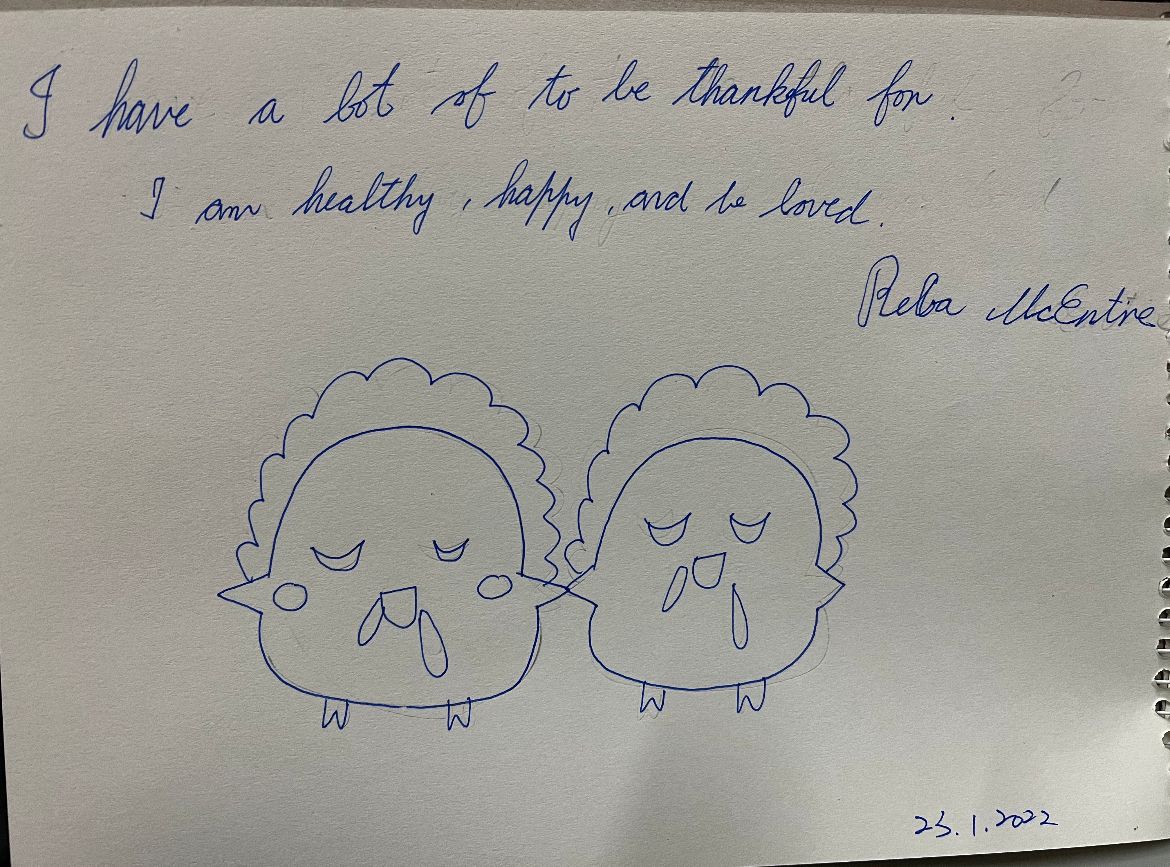 I have a lot of to be thankful for.
I am healthy, happy, and be loved.
Reba McEntire
23.1.2022